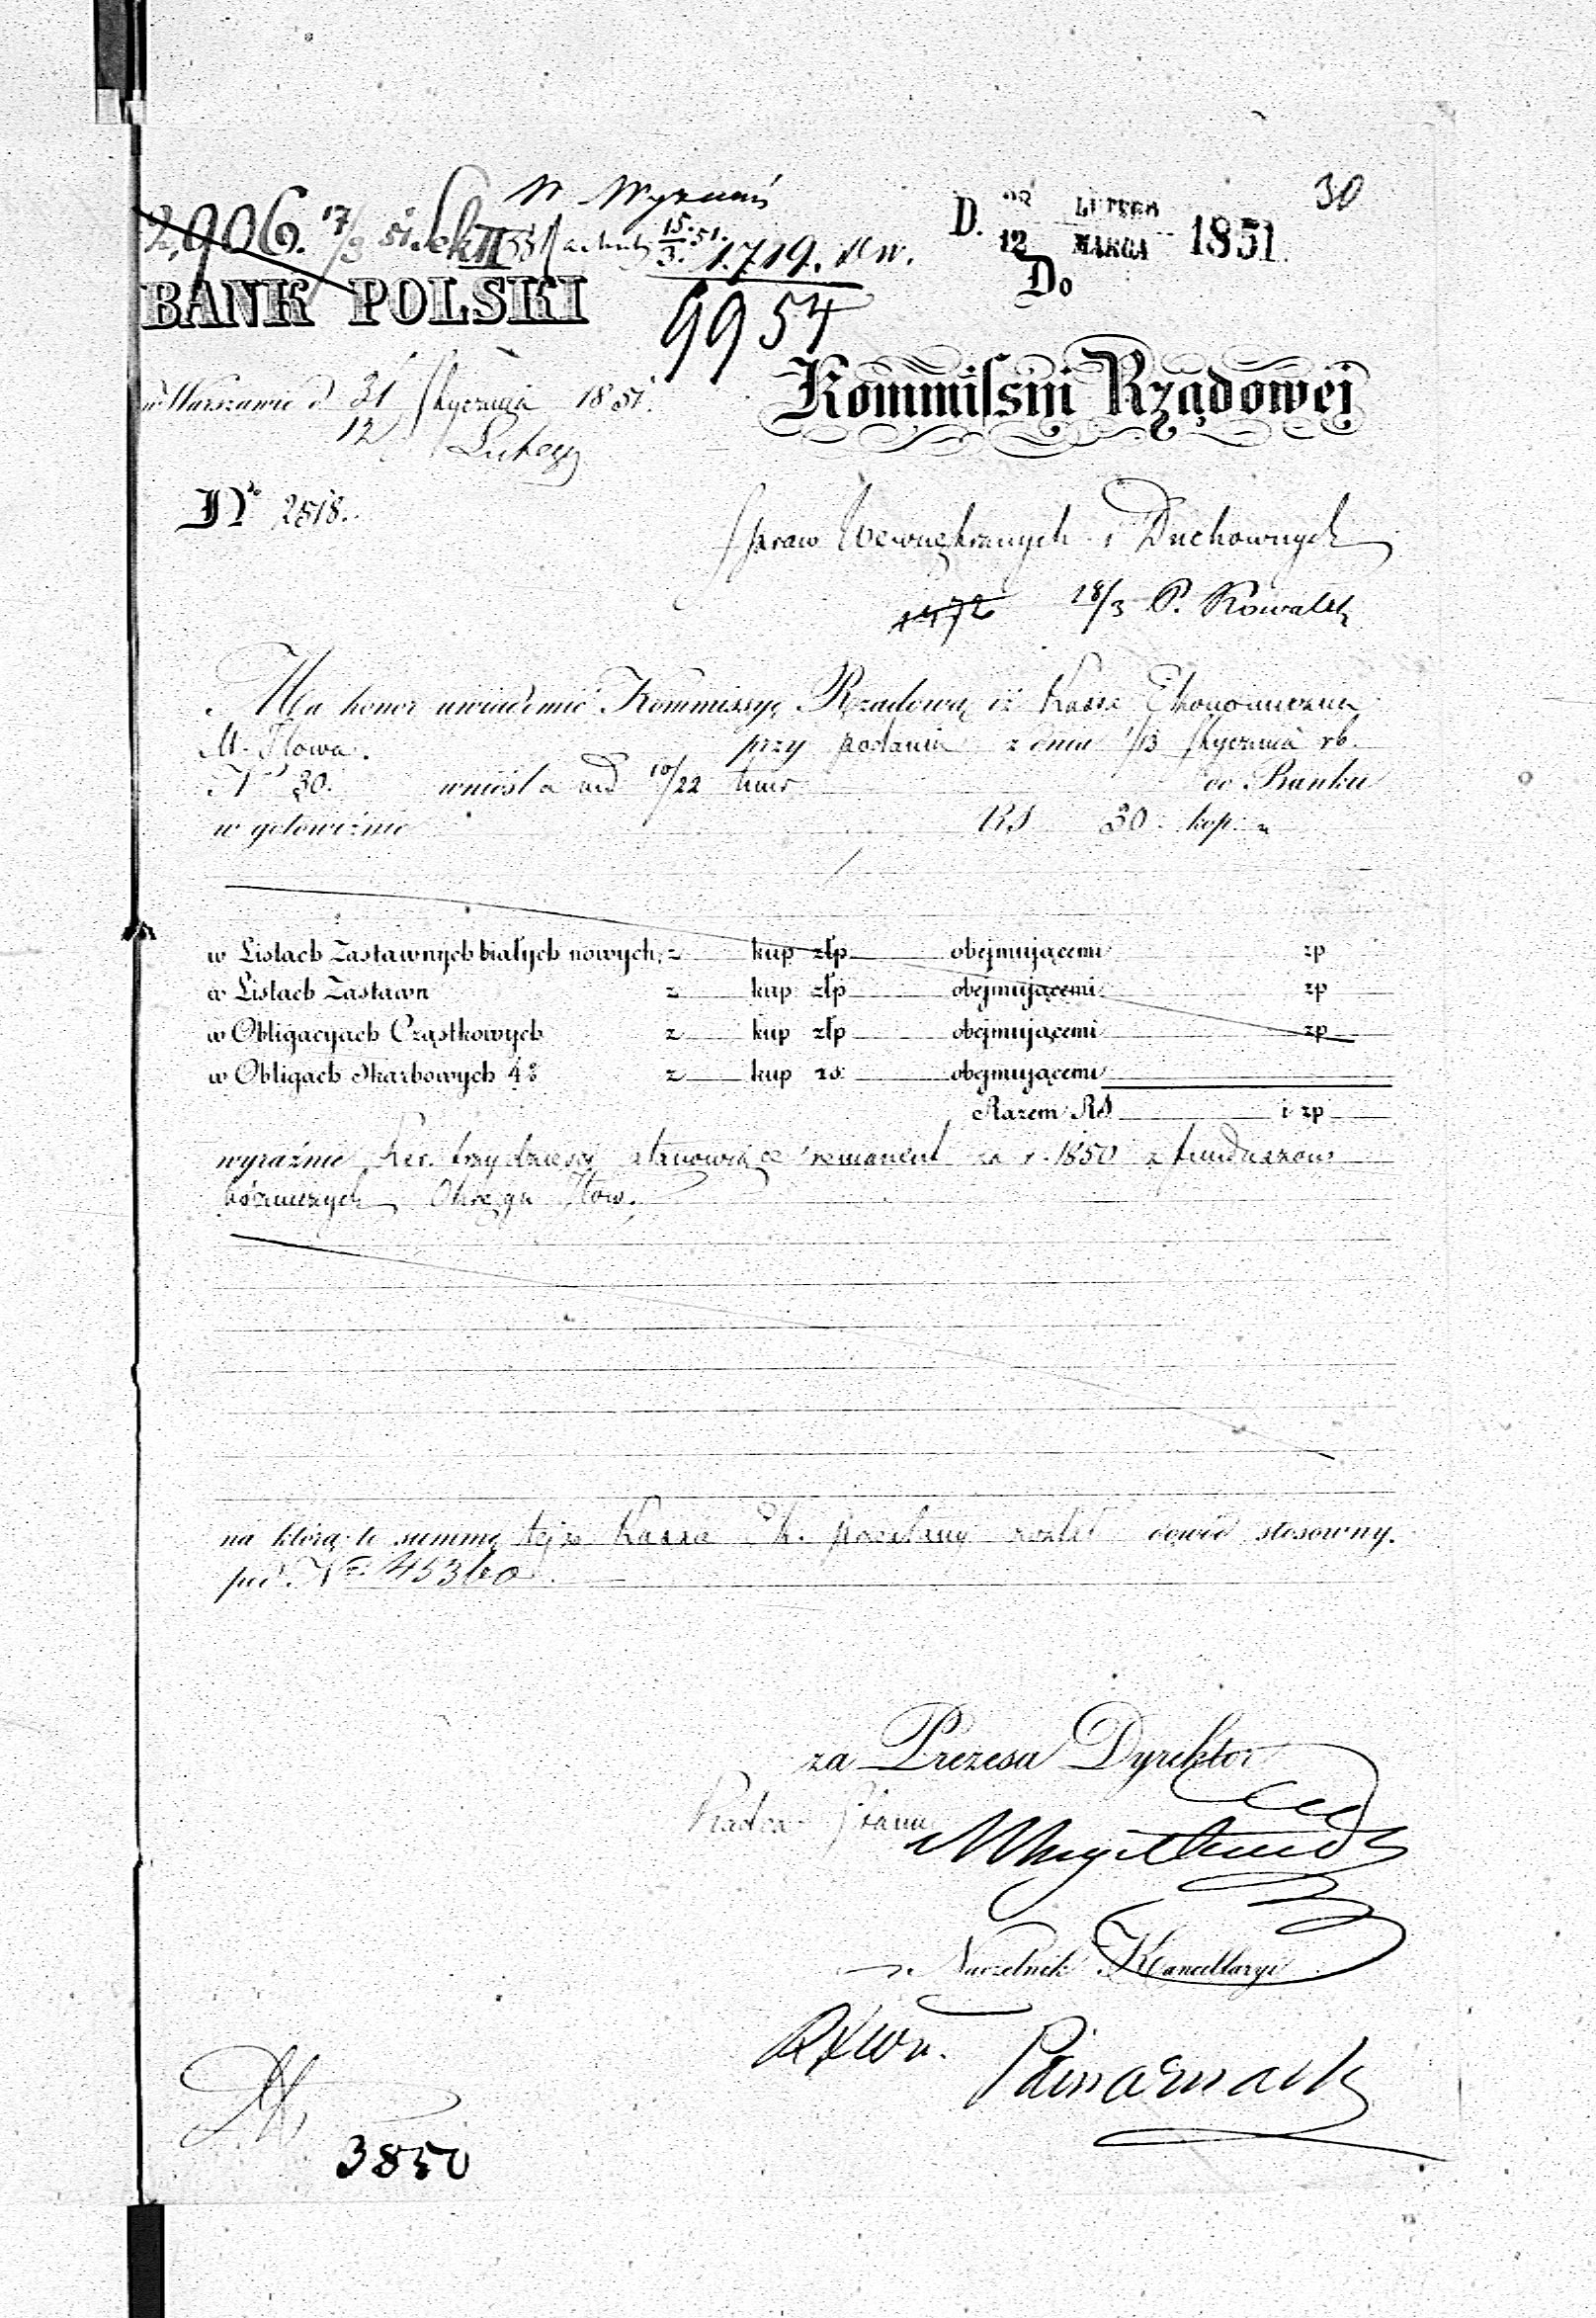 30
2,906. 17/3 51. Sek II
15/3 51. 1.719.
D. 12 LUTEGO MARCA 1851.
BANK POLSKI
9954
Do
Kommissyi Rządowej
w Warszawie d 31 Stycznia 1851.
12 Lutego
N° 2818.
Spraw Wewnętrznych i Duchownych
1472 18/3 P. Kowalsk
Ma honor uwiadomić Kommissyę Rządową iż Kassa Ekonomiczna
M. Iłowa. przy podaniu z dnia 1/13 Stycznia rb.
N° 30. wniosła nad 10/22 t.m.r. do Banku
w gotowiźnie RS 30. kop. „
w Listach Zastawnych białych nowych, z kup złp obejmującemi zp
w Listach Zastawn z kup złp obejmującemi zp
w Obligacyach Cząstkowych z kup złp obejmującemi zp
w Obligach Skarbowych 4% z kup rs. obejmującemi
Razem RS i zp
wyraźnie trzydzieści stanowiące remanent za r. 1850 z funduszów
bóżniczych Okręgu Iłow.
na którą to summę tejże Kassa Ek. został dowód stosowny.
pod N° 45360.
za Prezesa Dyrektor
Radca Stanu
Naczelnik Kancellaryi
3850